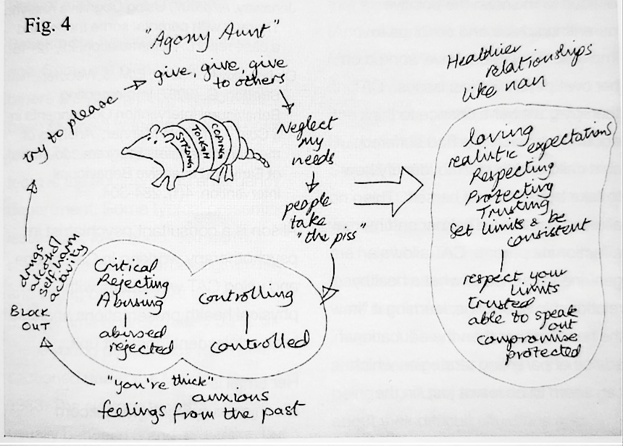 Fig. 4
"Agony Aunt"
give, give, give
to others
try to please
STRONG
TOUGH
COPING
Neglect
my
needs
people
take
"the piss"
Critical
Rejecting
Abusing
abused
rejected
controlling
controlled
"you're thick"
anxious
feelings from the past
BLOCK
OUT
drugs
alcohol
self harm
activity
Healthier
relationships
like nan
loving
realistic expectations
Respecting
Protecting
Trusting
Set limits & be
consistent
respect your
limits
trusted
able to speak
out
compromise
protected